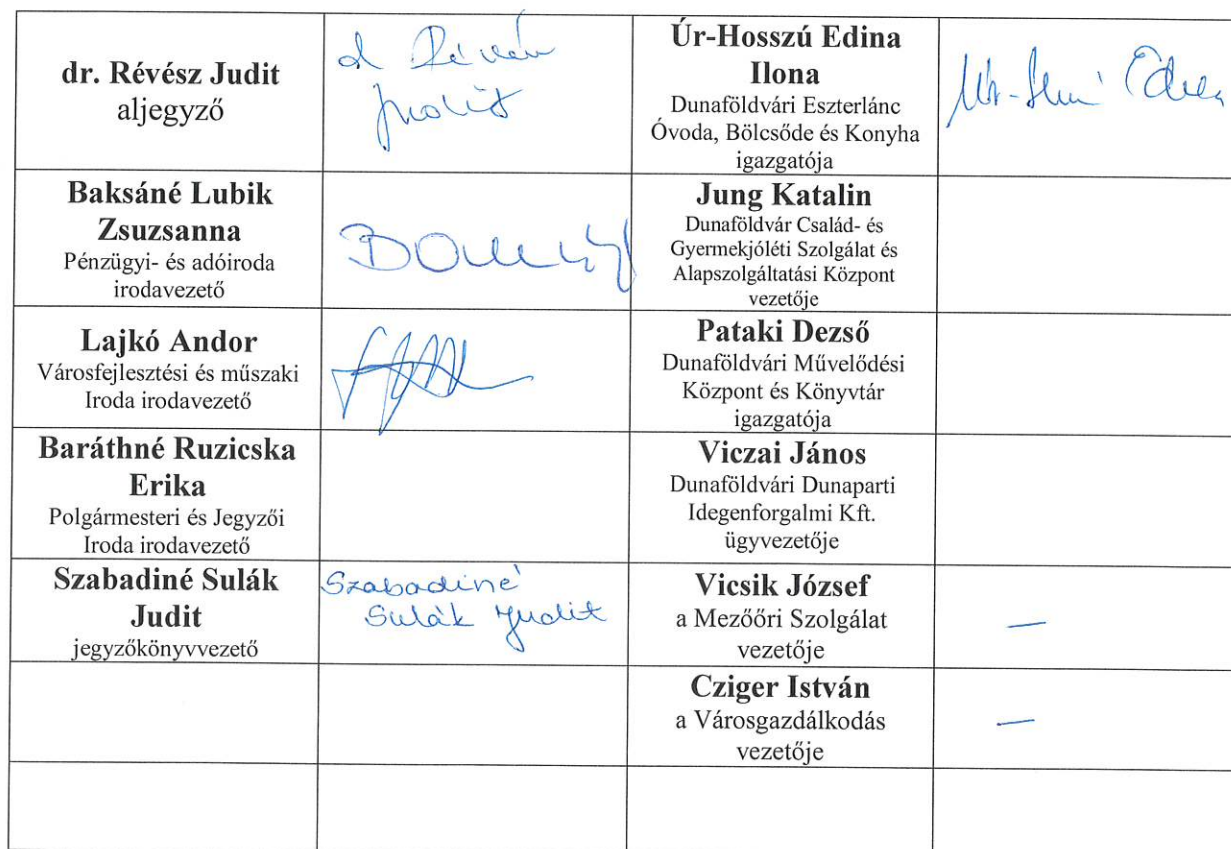 dr. Révész Judit
aljegyző
d Révész
Judit
Úr-Hosszú Edina
Ilona
Dunaföldvári Eszterlánc
Óvoda, Bölcsőde és Konyha
igazgatója
Edina
Baksáné Lubik
Zsuzsanna
Pénzügyi- és adóiroda
irodavezető
Jung Katalin
Dunaföldvár Család- és
Gyermekjóléti Szolgálat és
Alapszolgáltatási Központ
vezetője
Lajkó Andor
Városfejlesztési és műszaki
Iroda irodavezető
Pataki Dezső
Dunaföldvári Művelődési
Központ és Könyvtár
igazgatója
Baráthné Ruzicska
Erika
Polgármesteri és Jegyzői
Iroda irodavezető
Viczai János
Dunaföldvári Dunaparti
Idegenforgalmi Kft.
ügyvezetője
Szabadiné Sulák
Judit
jegyzőkönyvvezető
Szabadiné
Sulák Judit
Vicsik József
a Mezőőri Szolgálat
vezetője
—
Cziger István
a Városgazdálkodás
vezetője
—